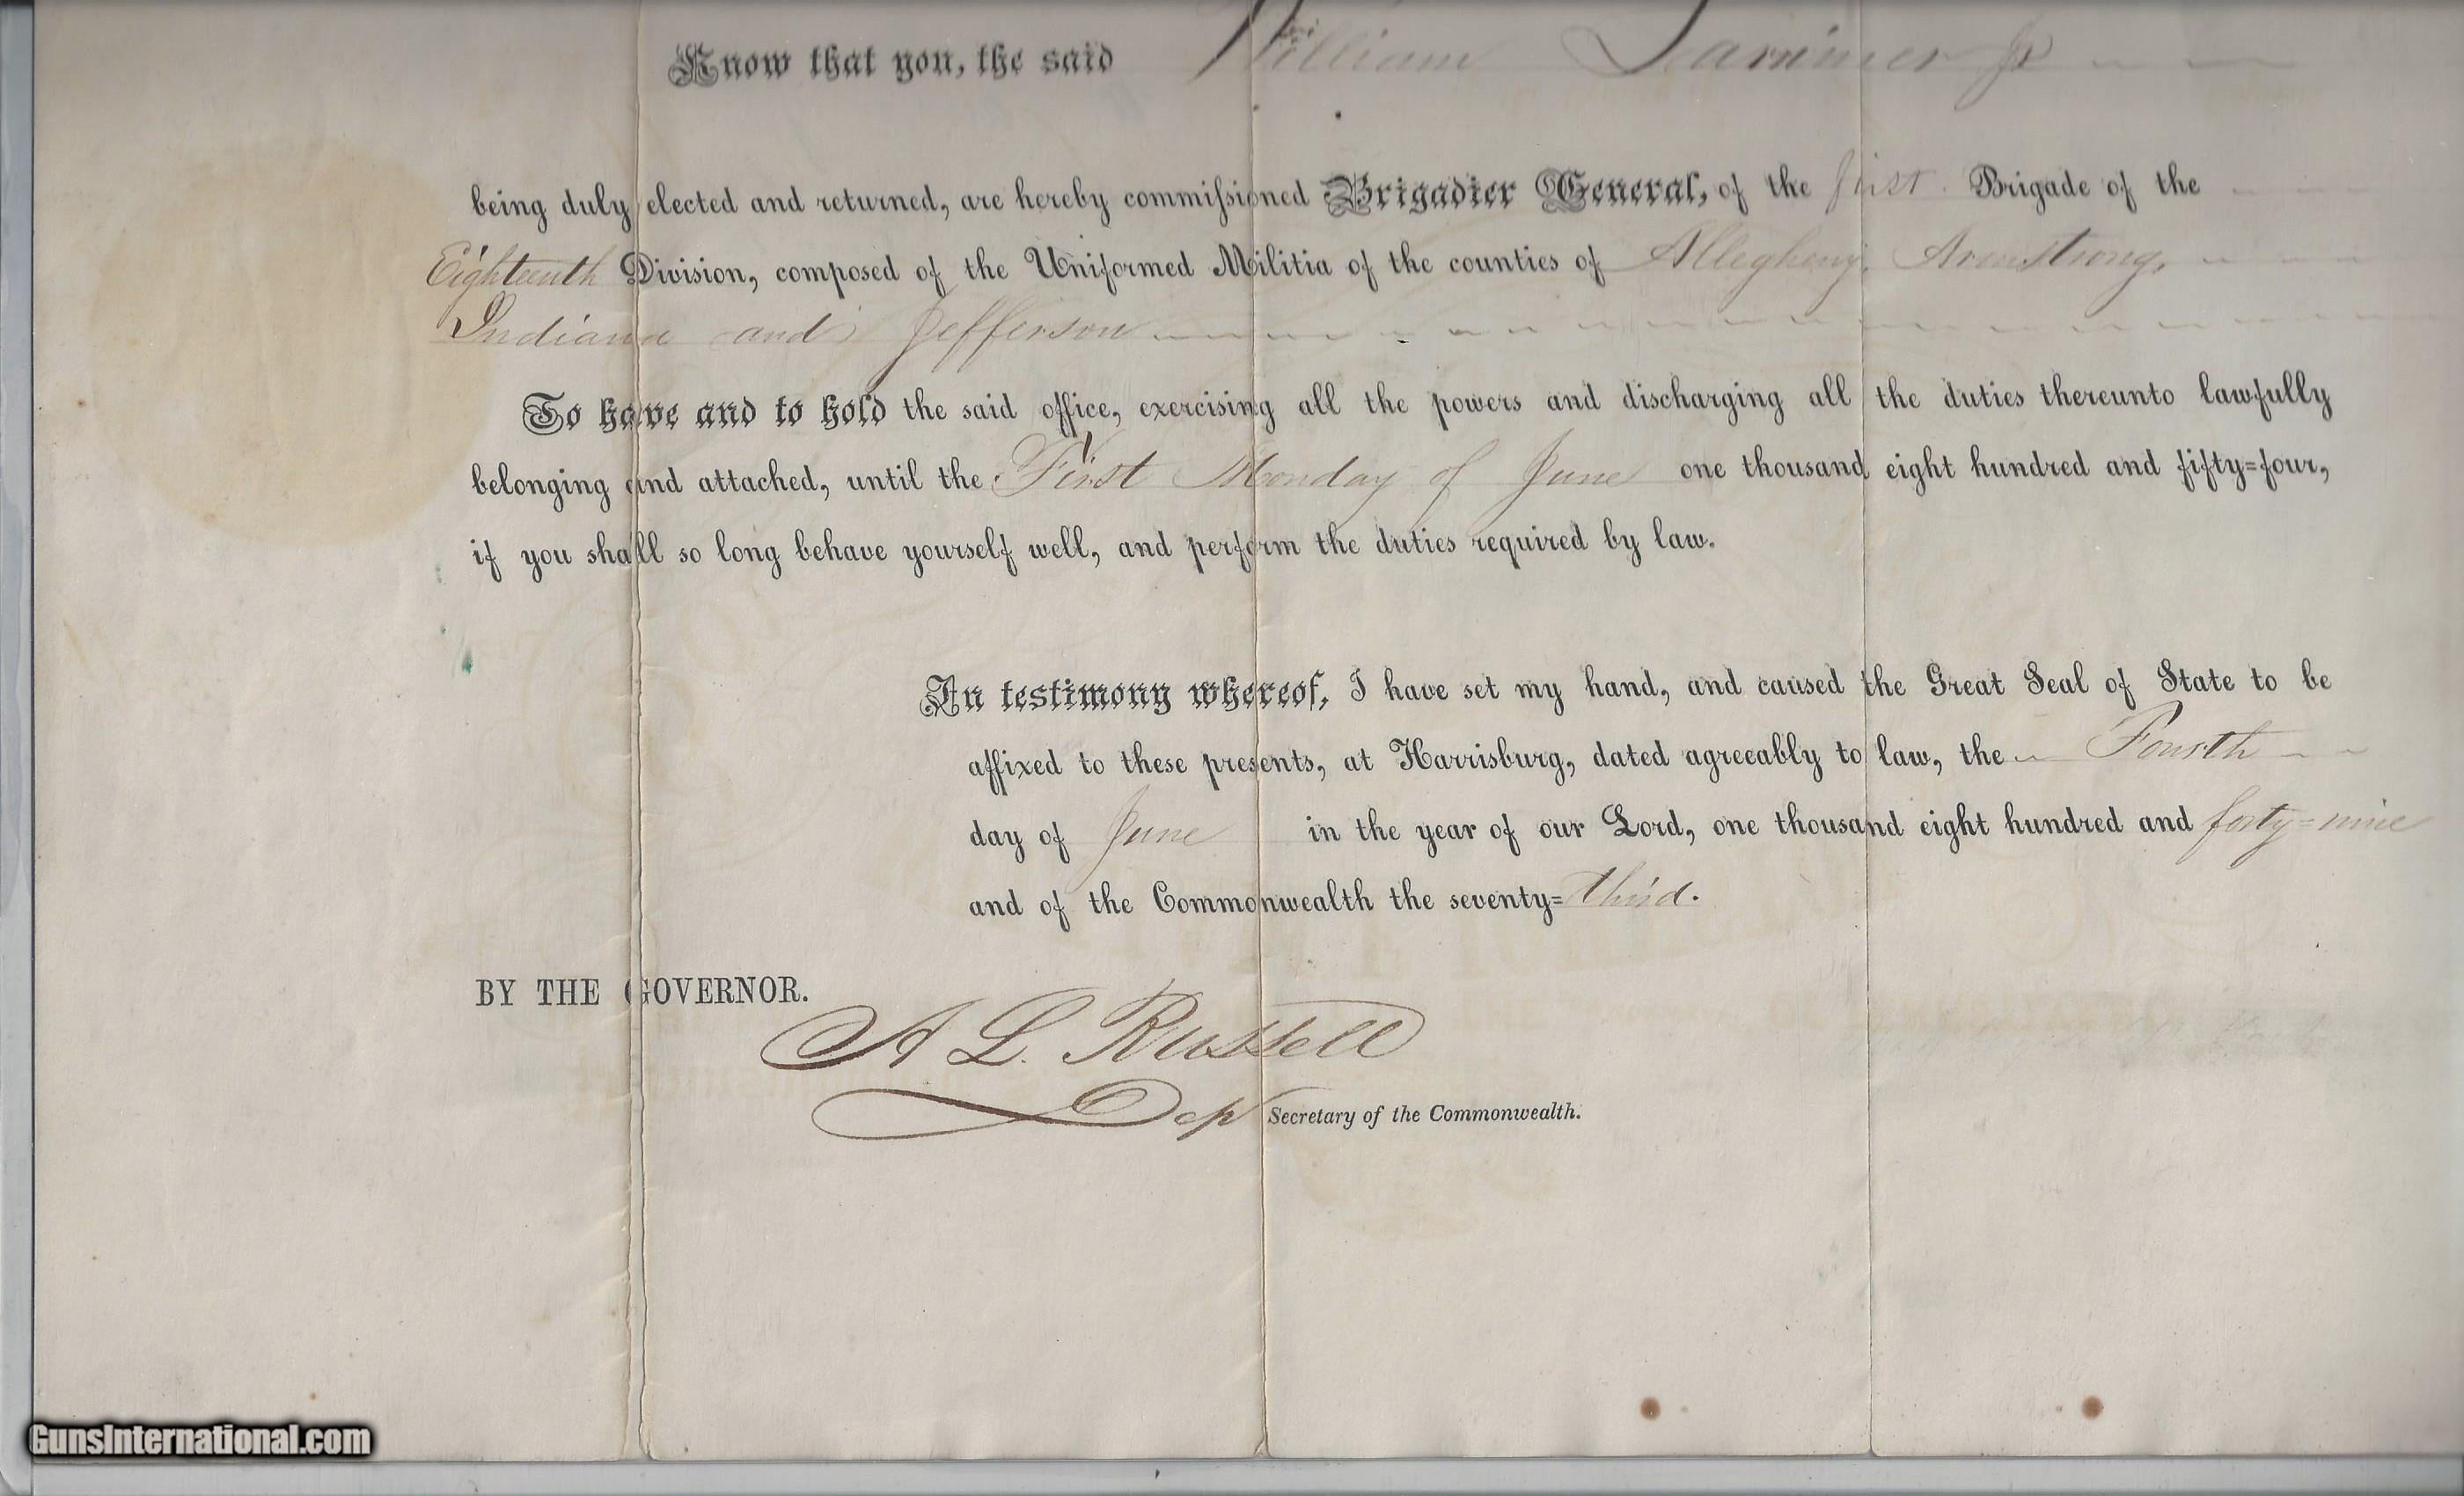 Know that you, the said William Larimer Jr
being duly elected and returned, are hereby commissioned Brigadier General, of the first Brigade of the
Eighteenth Division, composed of the Uniformed Militia of the counties of Allegheny, Armstrong,
Indiana and Jefferson
To have and to hold the said office, exercising all the powers and discharging all the duties thereunto lawfully
belonging and attached, until the First Monday of June one thousand eight hundred and fifty=four,
if you shall so long behave yourself well, and perform the duties required by law.
In testimony whereof, I have set my hand, and caused the Great Seal of State to be
affixed to these presents, at Harrisburg, dated agreeably to law, the Fourth
day of June in the year of our Lord, one thousand eight hundred and forty=nine
and of the Commonwealth the seventy=third.
BY THE GOVERNOR.
A L. Russell
Dep Secretary of the Commonwealth.
GunsInternational.com